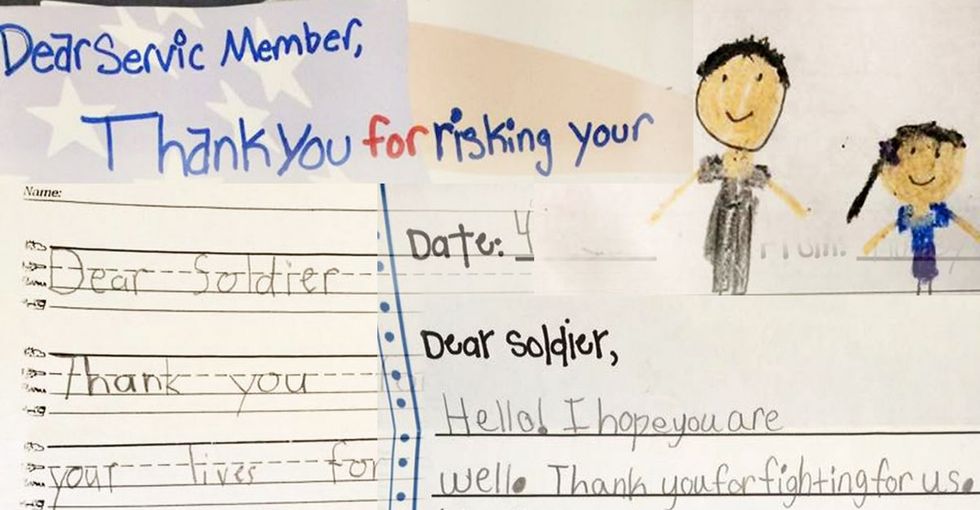 Dear Servic Member,
Thank You for risking your
Name:
Dear Soldier
Thank you for
your lives for
Date: 4
From:
Dear Soldier,
Hello! I hope you are
well. Thank you for fighting for us.